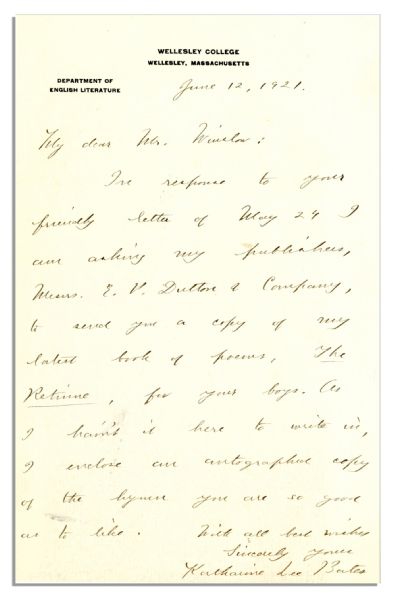 WELLESLEY COLLEGE
WELLESLEY, MASSACHUSETTS
DEPARTMENT OF
ENGLISH LITERATURE
June 12, 1921.
My dear Mr. Winslow:
In response to your
friendly letter of May 24 I
am asking my publishers,
Messrs. E. P. Dutton & Company,
to send you a copy of my
latest book of poems, The
Retinue, for your boys. As
I haven't it here to write in,
I enclose an autographed copy
of the hymn you are so good
as to like. With all best wishes
Sincerely yours
Katharine Lee Bates